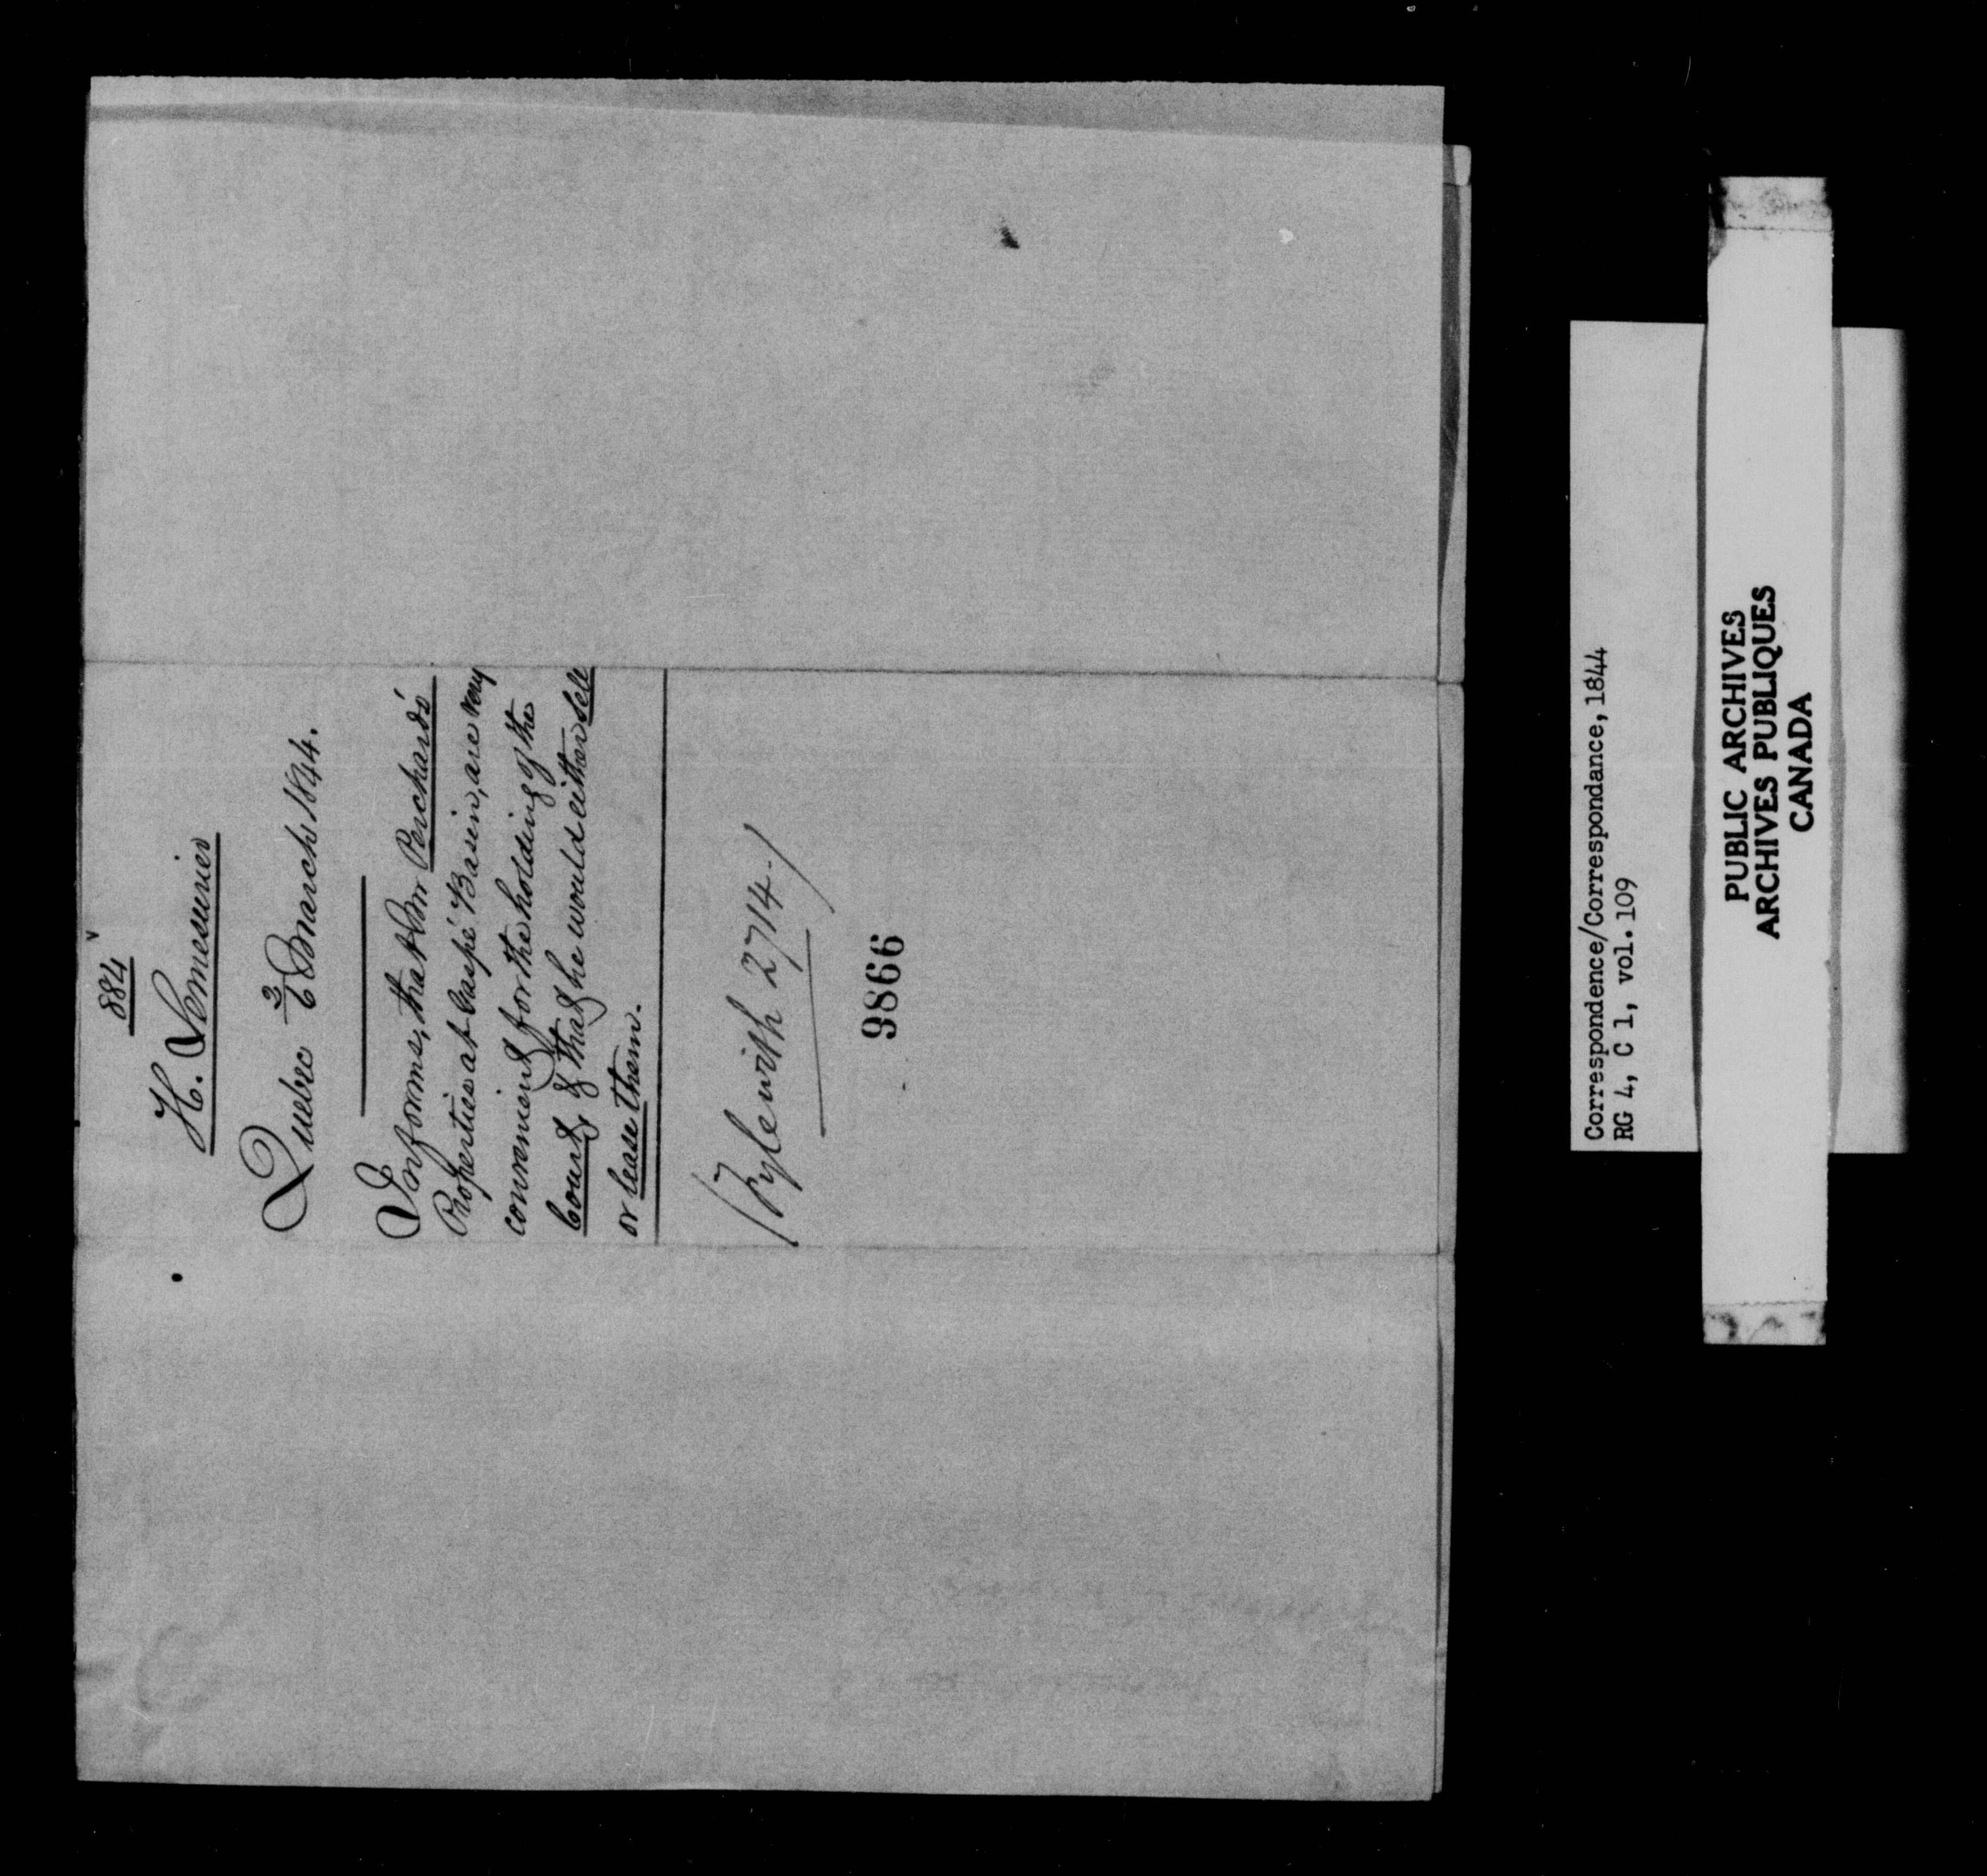 884
H. Lemesurier
Quebec March 1844.
Informs, that Mr Perchard's
Properties at Gaspé Basin, are very
convenient for the holding of the
Court, & that he would either sell
or lease them.
(Fyle with 2714.)
9866
Correspondence/Correspondance, 1844
RG 4, C 1, vol. 109
PUBLIC ARCHIVES
ARCHIVES PUBLIQUES
CANADA